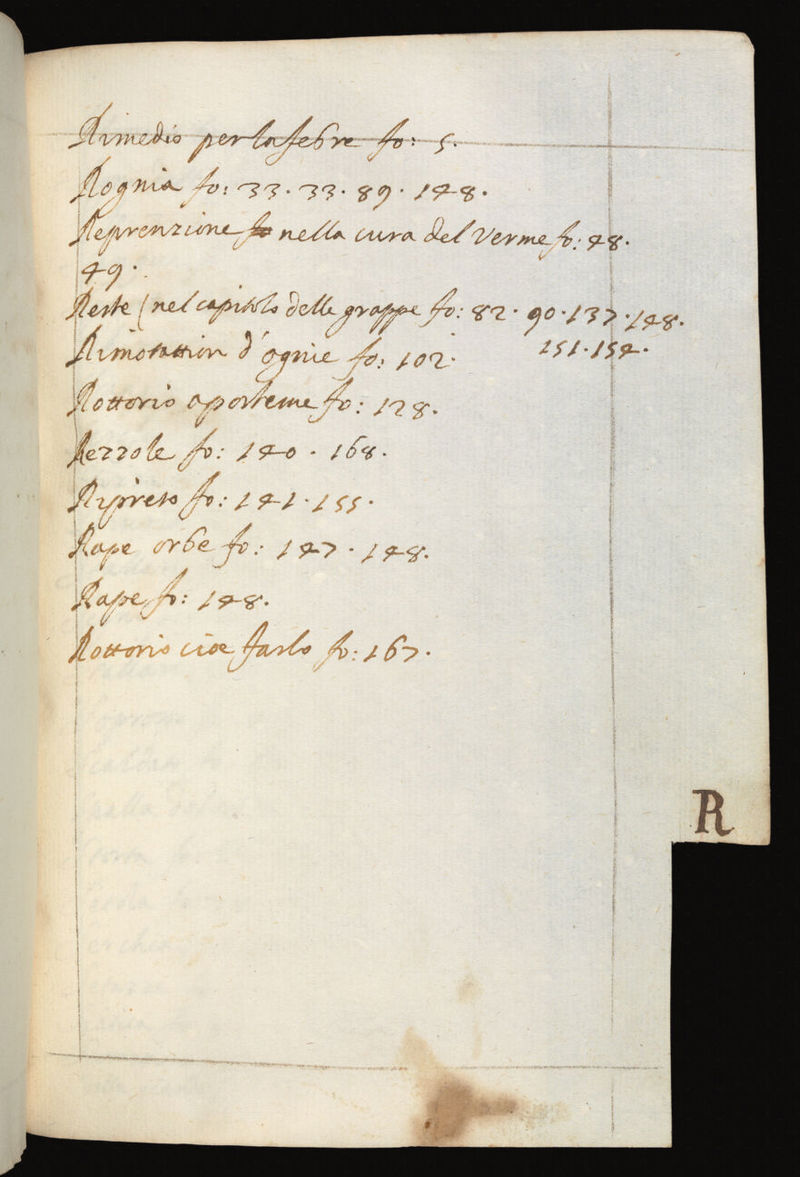 Rimedio per la febre fo: 5.
Rognia fo: 33. 33. 89. 148.
Reprenzione fo nella cura del Verme fo: 48.
49.
Reste (nel capitolo delle grappe fo: 82. 90. 137. 148.
151. 154.
Rimotattion d'ognie fo: 102.
Rottorio aposteme fo: 128.
Rezzole fo: 140. 168.
Ripreso fo: 141. 155.
Rape orbe fo: 147. 148.
Rape fo: 148.
Rottorio cioe farlo fo: 167.
R